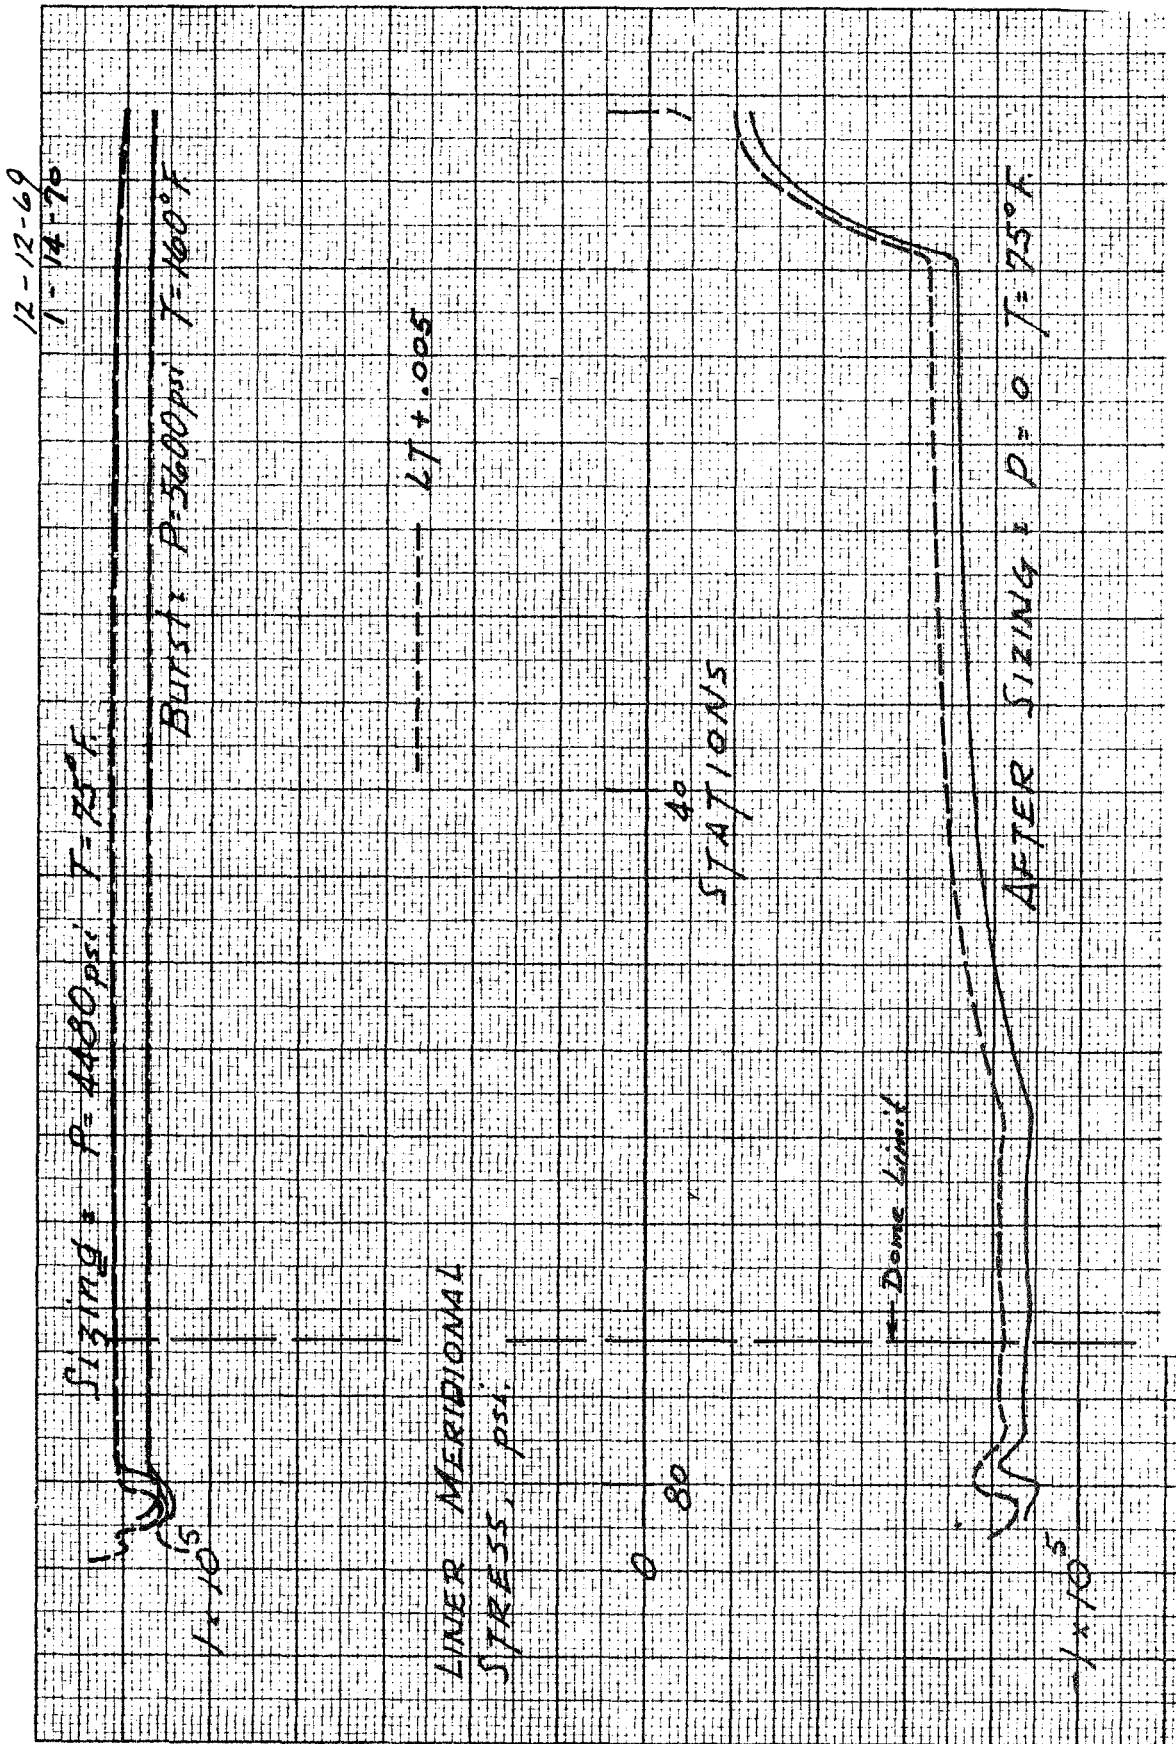 12-12-69
1-14-70
Sizing: P=4480psi T=75°F.
Burst: P=5600psi T=160°F.
LT+.005
1x10⁵
LINER MERIDIONAL
STRESS, psi.
0
80
40
1
STATIONS
Dome Limit
AFTER SIZING: P=0 T=75°F.
-1x10⁵